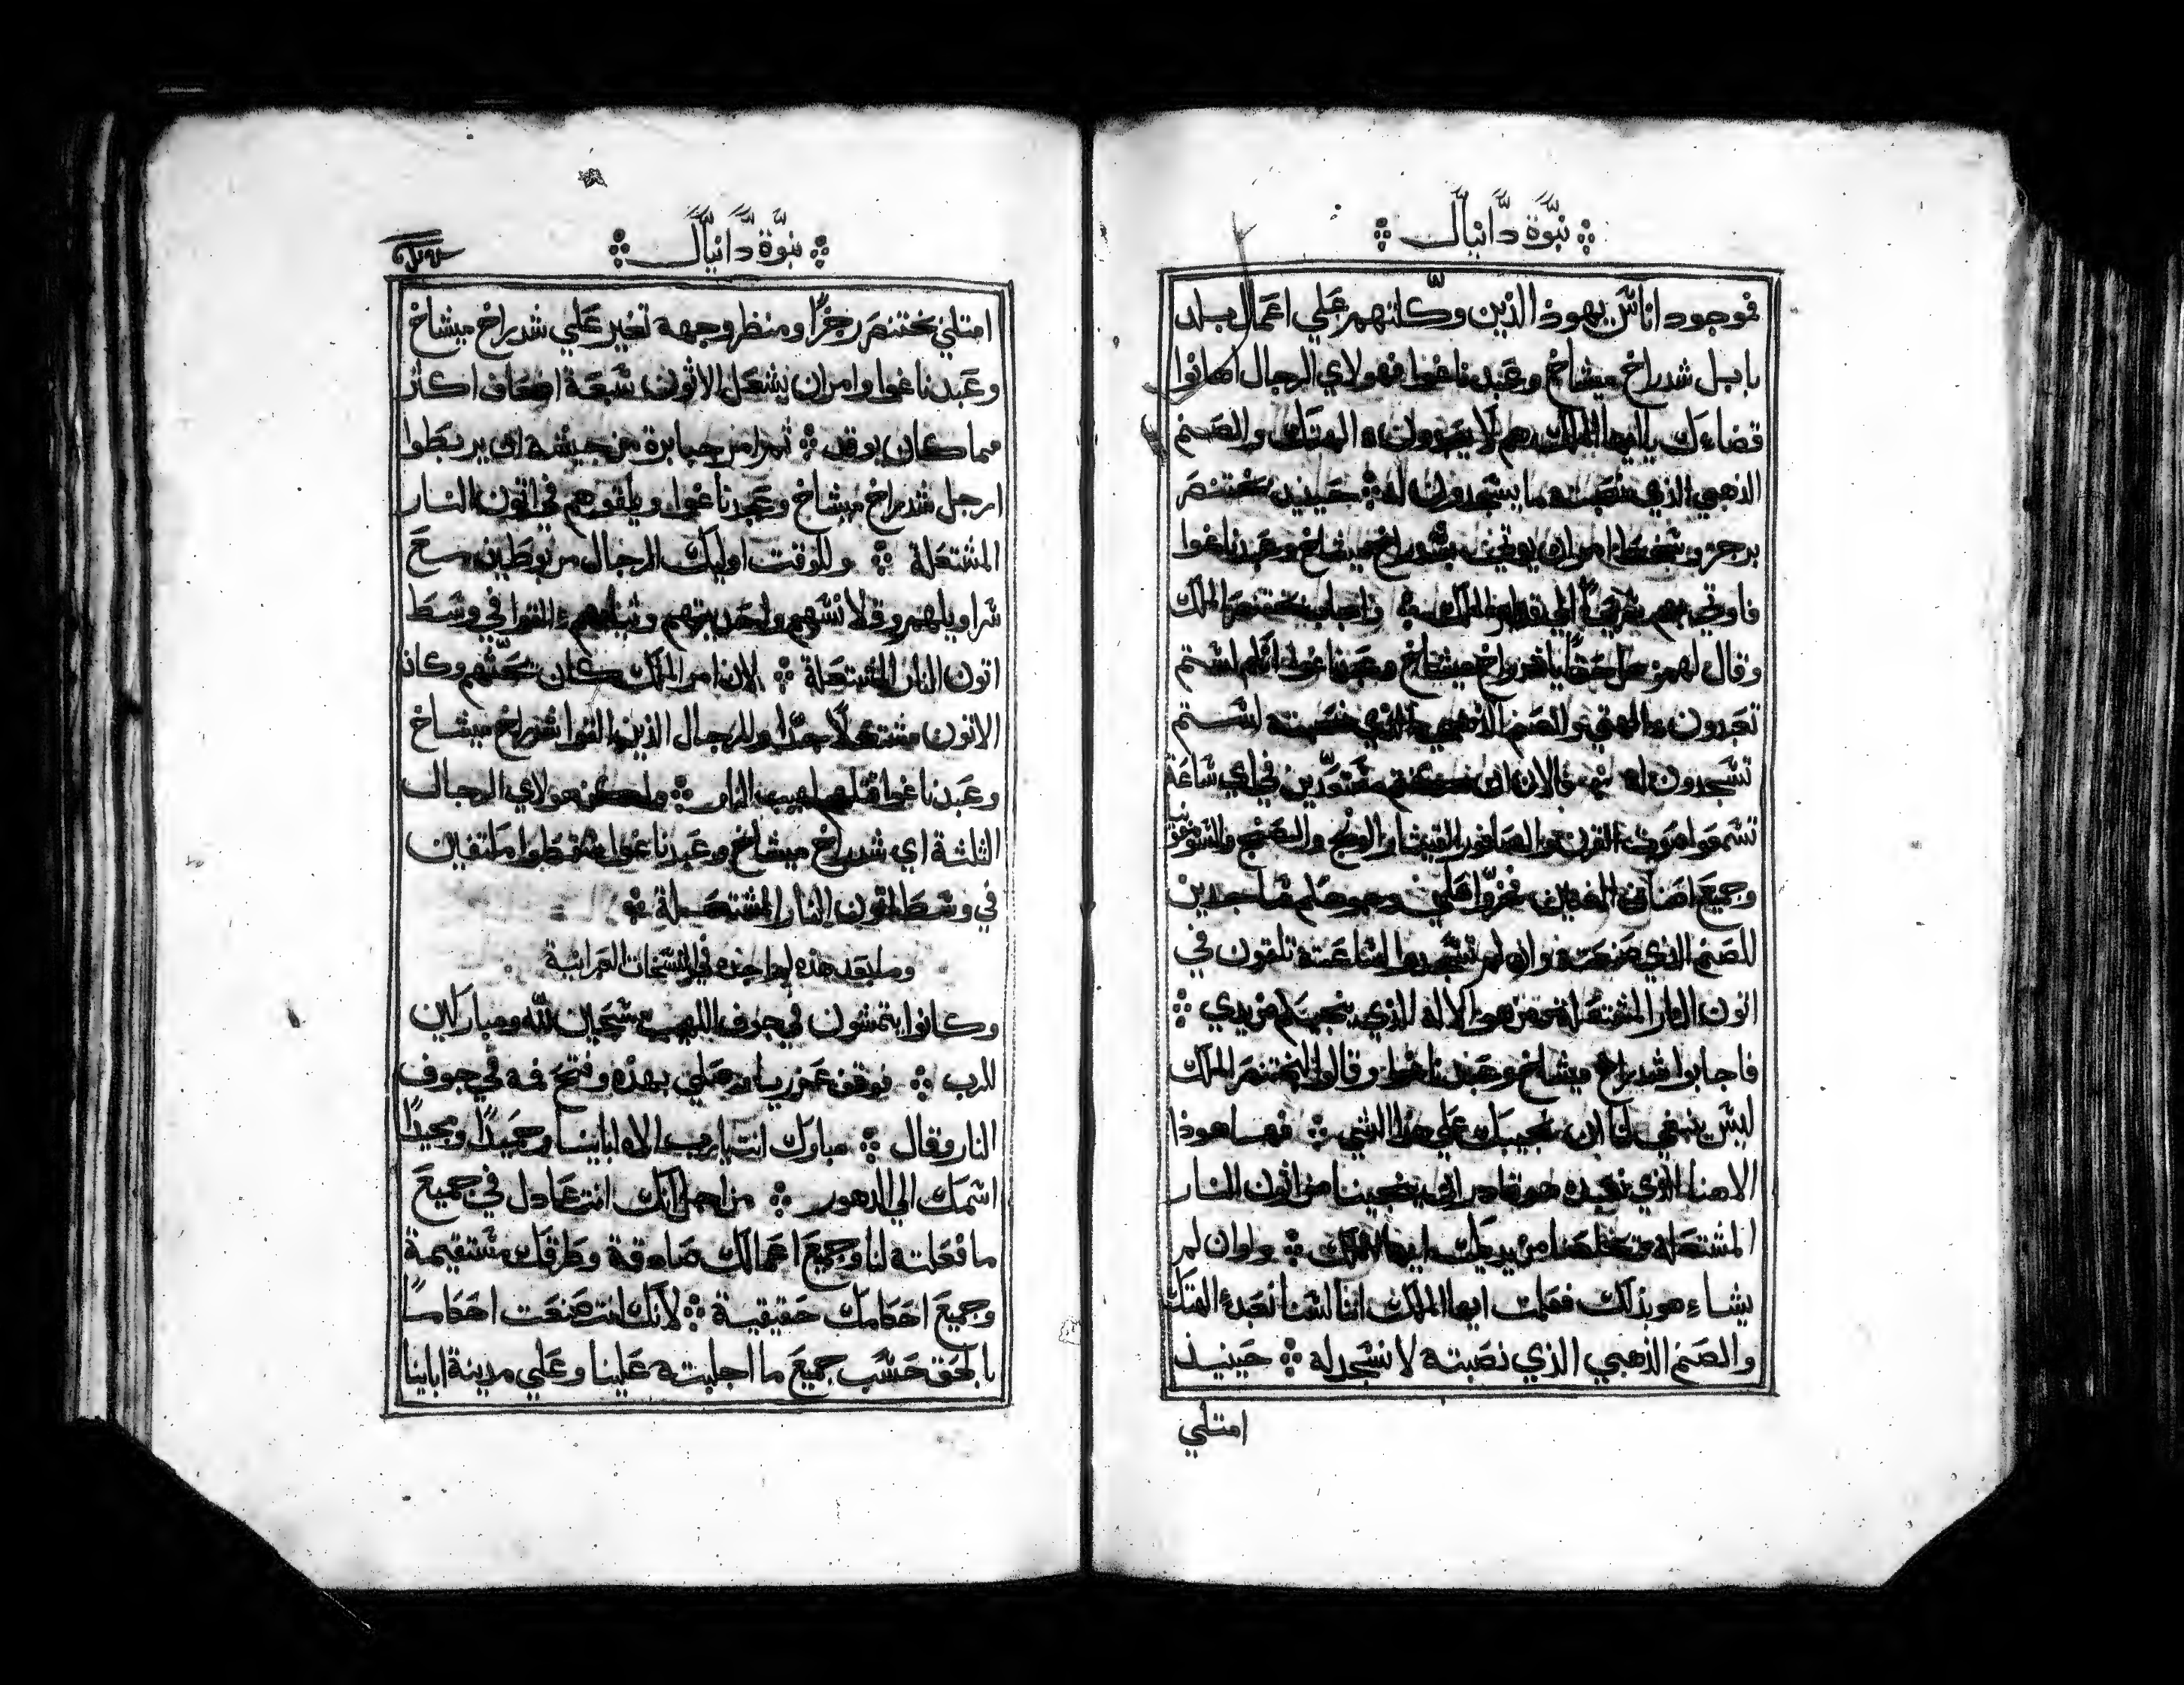 نبوة دانيال
فوجود اناس يهود الذين وكلتهم علي اعمال بلد
بابل شدراخ ميشاخ وعبدناغوا فهولاي الرجال اهانوا
قضاءك ياايها الملك هم لا يعبدون الهتك والصنم
الذهبي الذي نصبته ما يسجدون له حينيذ بختنصر
برجز وسخط امر ان يوتي بشدراخ ميشاخ وعبدناغوا
فاوتي بهم سريعا الي قدام الملك واجاب بختنصر الملك
وقال لهم هل حقا ياشدراخ ميشاخ وعبدناغوا انكم لستم
تعبدون الهتي والصنم الذهبي الذي نصبته لستم
تسجدون له فالان ان كنتم مستعدين في اي ساعة
تسمعوا صوت القرن والصافور القيثار والونج والصنج
وجميع اصناف المغنيين فخروا علي وجوهكم ساجدين
للصنم الذي صنعته وان لم تسجدوا لساعته تلقون في
اتون النار المشتعلة فمن هو الاله الذي ينجيكم من يدي
فاجابوا شدراخ ميشاخ وعبدناغوا وقالوا لبختنصر الملك
ليس ينبغي لنا ان نجيبك علي هذا الشي فها هوذا
الاهنا الذي نعبده هو قادر ان ينجينا من اتون النار
المشتعلة ويخلصنا من يديك ايها الملك وان لم
يشاء هو بذلك فعلمت ايها الملك اننا لسنا نعبد الهتك
والصنم الذهبي الذي نصبته لا نسجد له حينيذ
امتلي
نبوة دانيال
امتلي بختنصر رجزا ومنظر وجهه تغير علي شدراخ ميشاخ
وعبدناغوا وامر ان يشعل الاتون سبعة اضعاف اكثر
مما كان يوقد ثم امر جبابرة من جيشه ان يربطوا
ارجل شدراخ ميشاخ وعبدناغوا ويلقوهم في اتون النار
المشتعلة وللوقت اوليك الرجال مربوطين مع
سراويلهم وقلانسهم واحذيتهم وثيابهم القوا في وسط
اتون النار المشتعلة لان امر الملك كان يحثهم وكان
الاتون مشتعلا جدا والرجال الذين القوا شدراخ ميشاخ
وعبدناغوا قتلهم لهيب النار ولكن هولاي الرجال
الثلثة اي شدراخ ميشاخ وعبدناغوا سقطوا ملتفين
في وسط اتون النار المشتعلة
وما بعد هذه لم اجده في النسخات العبرانية
وكانوا يتمشون في جوف اللهيب مسبحين لله ومباركين
للرب فوقف عزريا وصلي بهذه وفتح فمه في جوف
النار وقال مبارك انت يارب الاه اباينا وحميدا ومجيدا
اسمك الي الدهور من اجل انك انت عادل في جميع
ما فعلته لنا وجميع اعمالك صادقة وطرقك مستقيمة
وجميع احكامك حقيقية لانك انت صنعت احكاما
بالحق حسب جميع ما اجلبته علينا وعلي مدينة اباينا